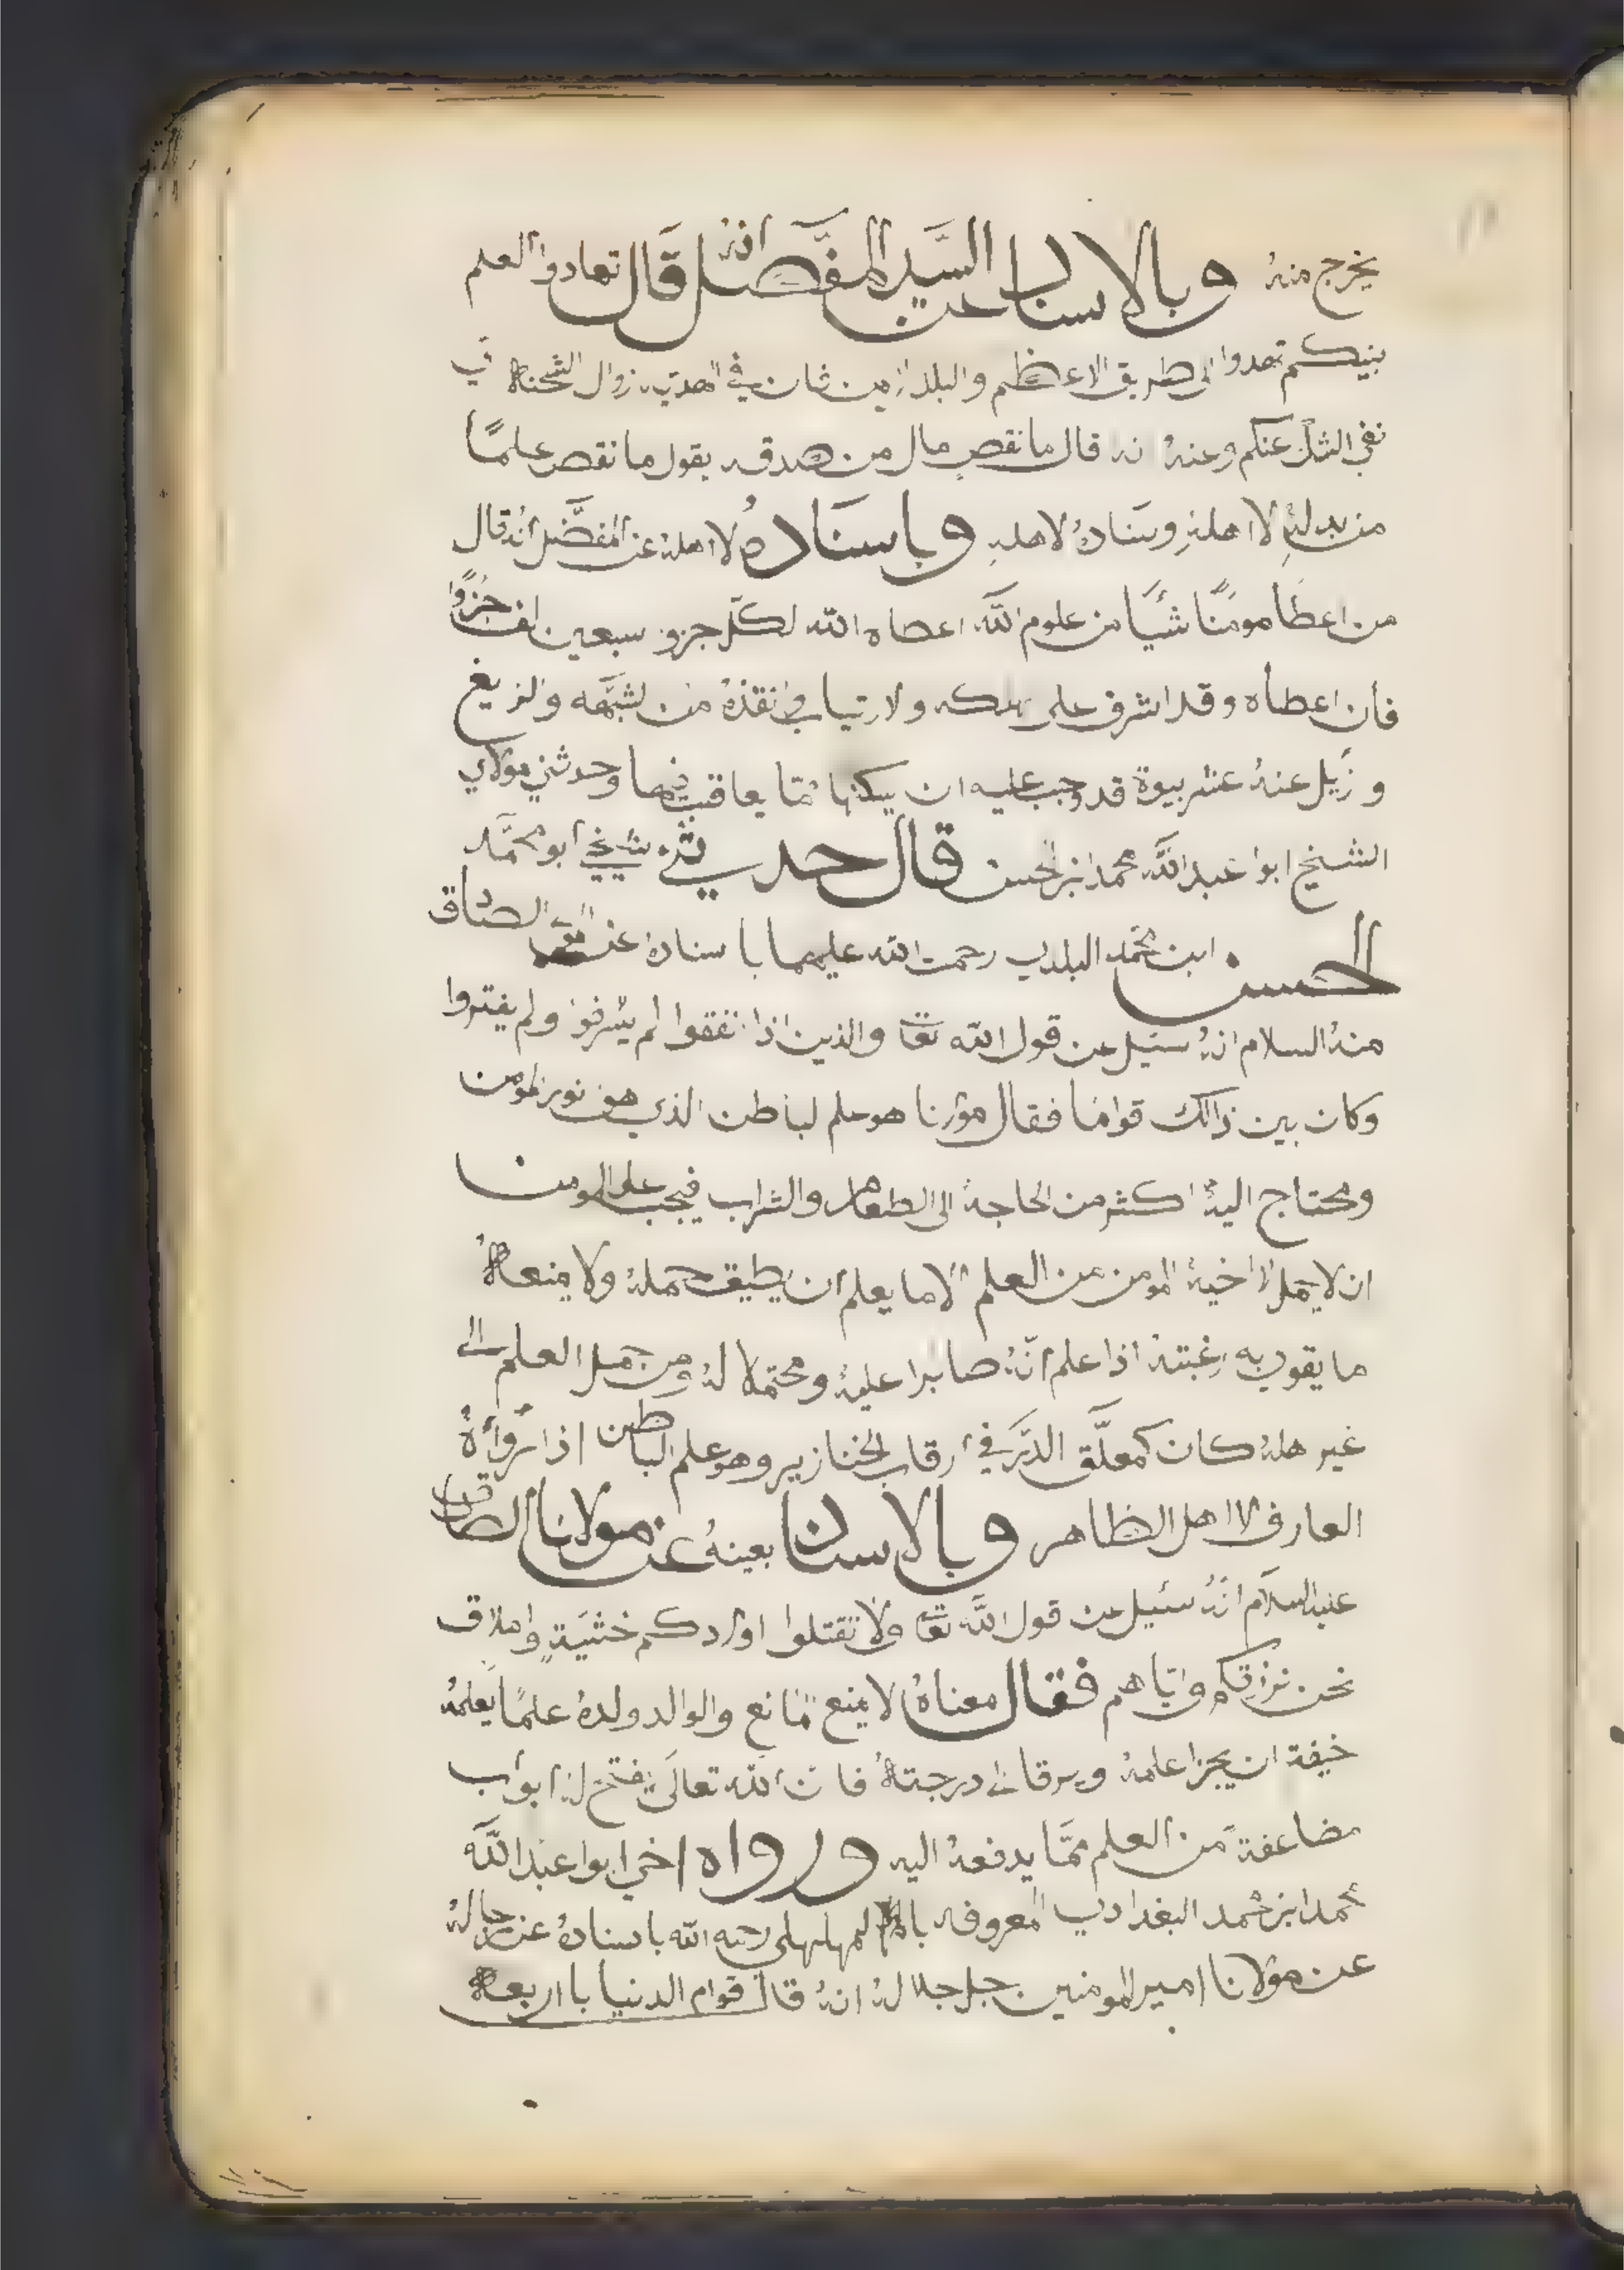 يخرج منهُ وبالاسناد عن السَّيد المفَّضل انهُ قَال تهادوا العلم
بينيكم تهدوا الى طريق الاعظم والبلد من شان في الهديه زوال الشحناه في
نفي الشك عنكم وعنهُ انه قال ما نقص مال من صدقه يقول ما نقص علمًا
من بدلهُ لااهلهِ وسَنادهُ لاهلهِ وباسنَادهُ لااهله عن المفضَّل انهُ قال
من اعطَا مومنًا شَيًا من علوم اللَّه اعطاه الله لكل جزو سبعين الف جُزوًا
فأن اعطأه وقد اشرف على هلكه والارتياب وانقذهُ من الشبَّهه والزيغ
وزَيل عنهُ عنه ربيوة قد وجب عليه ان يسكنها ممّا يعاقب فيها وحدثني مولاي
الشيخ ابوا عبد اللَّه محمد ابن الحسن قال حديثني شيخي ابو محمَّد
الحسن ابن محمَّد البلدي رحمت الله عليهما باسناده عن الصادق
منهُ السلام انهُ سئيل عن قول الله تعا والذين اذا نفقوا لم يسرفو ولم يفتروا
وكان بين ذالك قوامًا فقال مولانا هو علم لباطن الذي هو نور المومن
ومحتاج اليهُ اكثر من الحاجهُ الى الطعام والشراب فيجب على المومن
ان لا يحمل الا اخيهُ المومن من العلم الا ما يعلم أن يطيق حملهُ ولا يمنعهُ
ما يقوي به رغبتهُ اذا علم انّهُ صابرا عليهُ ومحتملا لهُ ومن حمل العلم الى
غير هلهُ كان كمعلَّق الدَّر في ارقاب الخنازير وهو علم الباطن اذا رواهُ
العارف لااهل الظاهر وبالاسناد بعينهُ عن مولانا الصادق
عليه السلام انهُ سئيل عن قول اللَّه تعا ولا تقتلوا اولادكم خشيَةٍ واملاق
نحن نرزقكم وايّاهم فقال معناهُ لا يمنع مانع والوالد ولدهُ علمًا يعلمهُ
خيفة ان يجزا علمهُ ويرقا الى درجتهُ فان الله تعالَى يفتح لهُ ابواب
مضاعفة من العلم ممَّا يدفعهُ اليه ورواه اخي ابوا عبد اللَّه
محمد ابن محمد البغدادي المعروف بالمهلهلي رحمه الله باسنادهُ عن رجالهُ
عن مولانا امير المومنين جل جلالهُ انهُ قال قوام الدنيا بااربعه